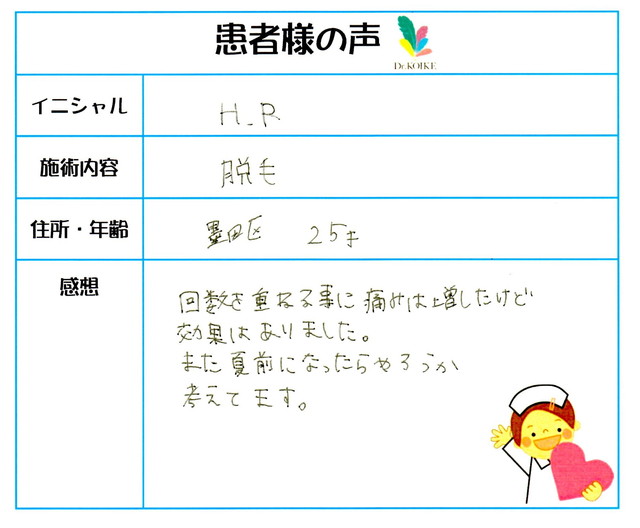 患者様の声
Dr.KOIKE
イニシャル
H.R
施術内容
脱毛
住所・年齢
墨田区 25才
感想
回数を重ねる事に痛みは増したけど
効果はありました。
また夏前になったらやろうか
考えてます。